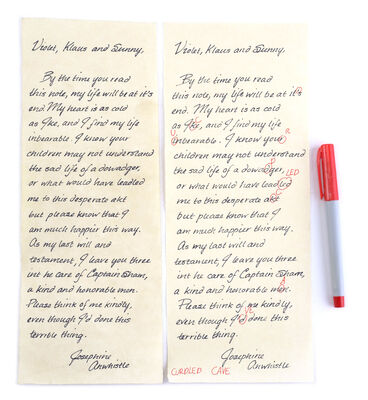 Violet, Klaus and Sunny,
By the time you read
this note, my life will be at it's
end. My heart is as cold
as Ike, and I find my life
inbearable. I know your
children may not understand
the sad life of a dowadger,
or what would have leadled
me to this desperate akt
but please know that I
am much happier this way.
As my last will and
testament, I leave you three
int he care of Captain Sham,
a kind and honorable men.
Please think of me kindly,
even though I'd done this
terrible thing.
Josephine
Anwhistle
Violet, Klaus and Sunny,
By the time you read
this note, my life will be at it's
end. My heart is as cold
as Ike, and I find my life
inbearable. I know your R
children may not understand
the sad life of a dowadger, LED
or what would have leadled
me to this desperate akt
but please know that I
am much happier this way.
As my last will and
testament, I leave you three
int he care of Captain Sham,
a kind and honorable men.
Please think of me kindly,
even though I'd done this
terrible thing.
Josephine
Anwhistle
CURDLED CAVE